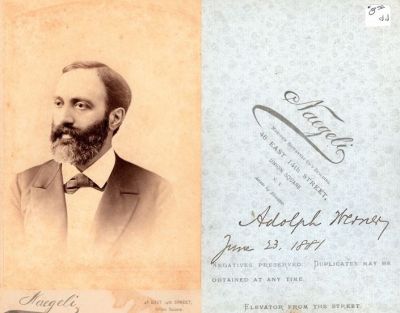 Naegeli
46 EAST 14th STREET,
Union Square
Naegeli
46 EAST 14th STREET,
UNION SQUARE
Adolph Werner
June 23. 1881
NEGATIVES PRESERVED. DUPLICATES MAY BE
OBTAINED AT ANY TIME.
ELEVATOR FROM THE STREET.